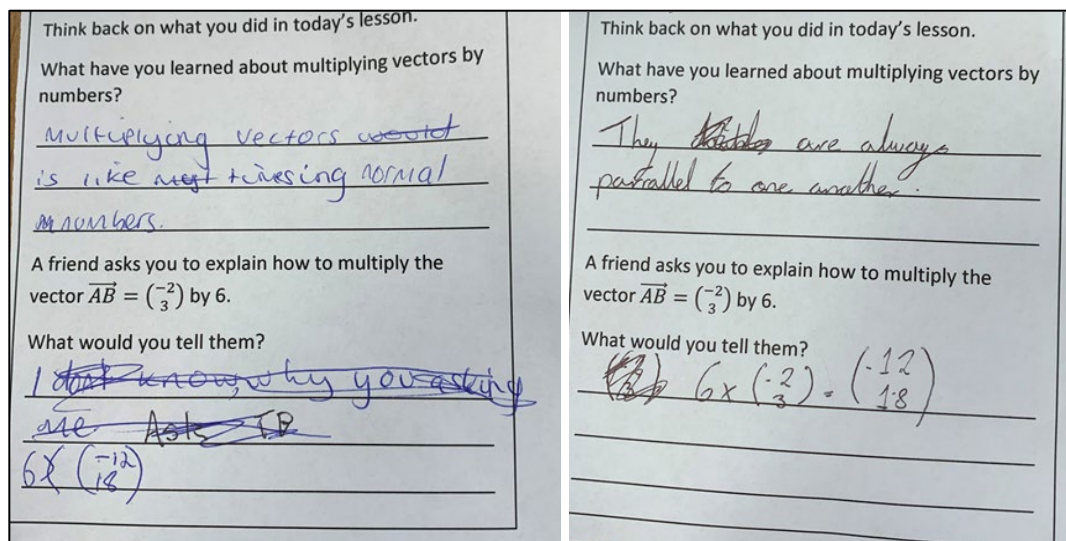 Think back on what you did in today's lesson.
What have you learned about multiplying vectors by
numbers?
Multiplying vectors would
is like timesing normal
numbers.
A friend asks you to explain how to multiply the
vector AB⃗ = (-2 3) by 6.
What would you tell them?
I dont know, why you asking
me Ask TB
6x (-12 18)
Think back on what you did in today's lesson.
What have you learned about multiplying vectors by
numbers?
They are always
parallel to one another.
A friend asks you to explain how to multiply the
vector AB⃗ = (-2 3) by 6.
What would you tell them?
6 x (-2 3) = (-12 18)